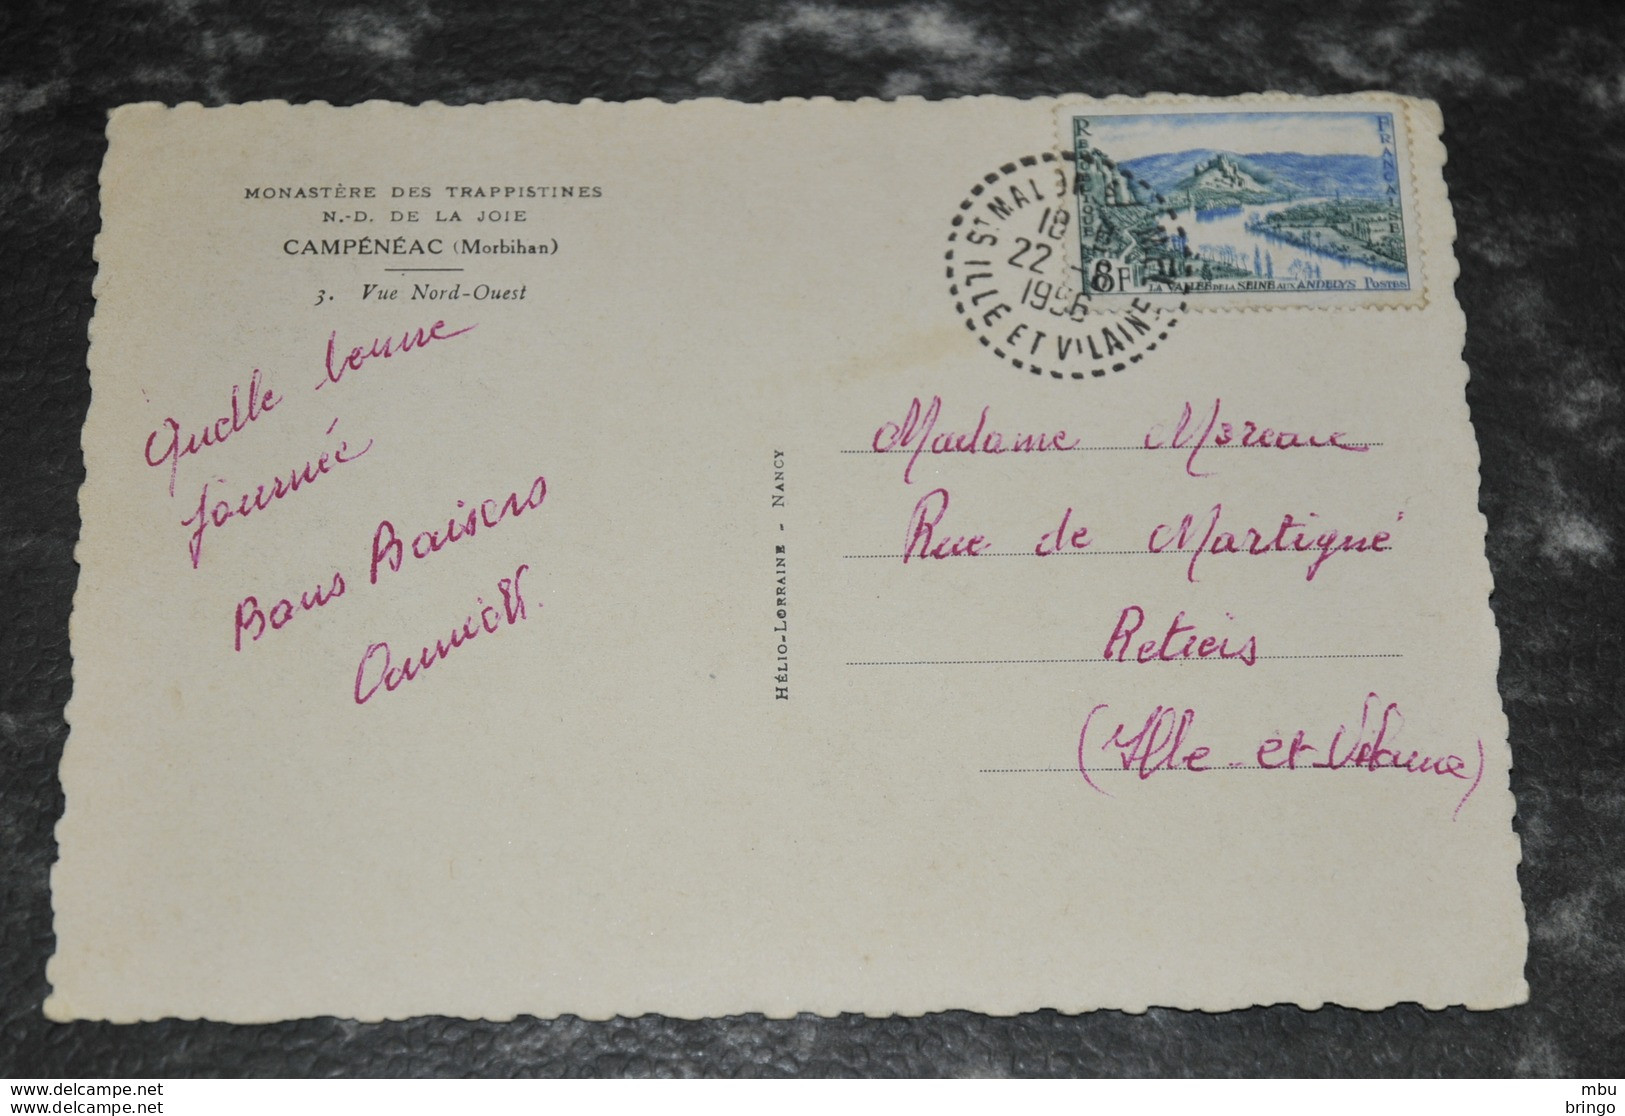 MONASTÈRE DES TRAPPISTINES
N.-D. DE LA JOIE
CAMPÉNÉAC (Morbihan)
3. Vue Nord-Ouest
Quelle bonne
journée
Bons Baisers
HÉLIO-LORRAINE - NANCY
REPUBLIQUE
FRANÇAISE
8F
LA VALLÉE DE LA SEINE AUX ANDELYS POSTES
ST MALO
18
22
1956
ILLE ET VILAINE
Madame Moreau
Rue de Martigné
Retiers
(Ille-et-Vilaine)
www.delcampe.net
www.delcampe.net
mbu
bringo